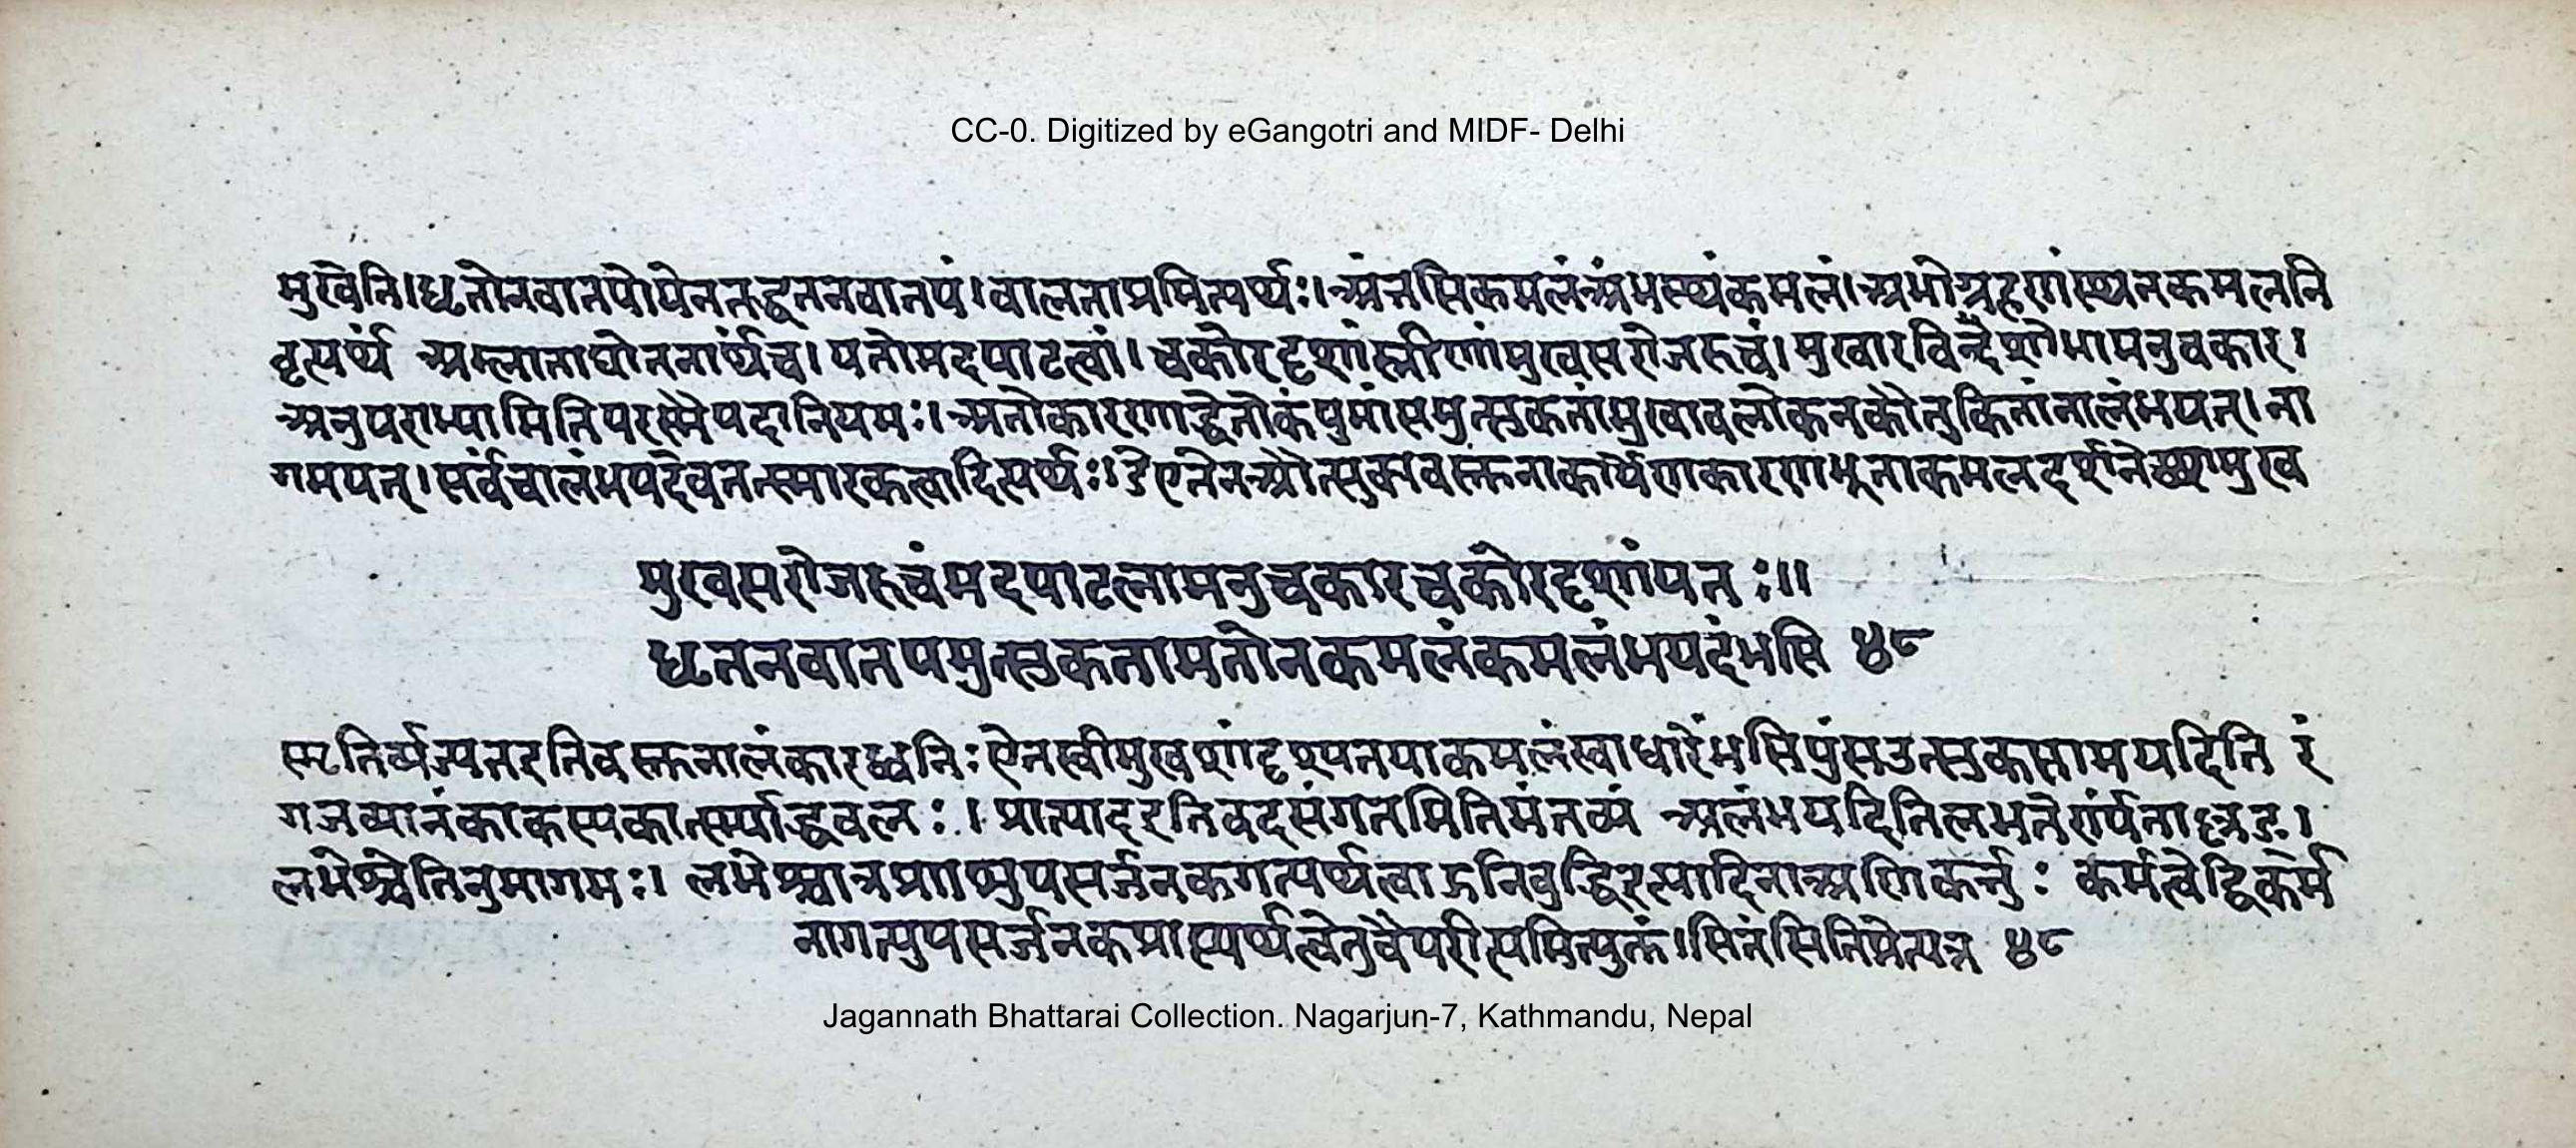 CC-0. Digitized by eGangotri and MIDF- Delhi
मुखेति।धृतोनवातपोयेनतद्धृतनवातपं।वालताम्रमित्यर्थः।अंभसिकमलंअंभस्थंकमलं।अंभोग्रहणंस्थलकमलनि
वृत्त्यर्थं अम्लानताद्योतनार्थंच। यतोमदपाटलां। चकोरदृशांस्त्रीणांमुखसरोजरुचं। मुखारविन्दशोभामनुचकार।
अनुपराभ्यामितिपरस्मैपदनियमः। अतोकारणाद्धेतोकंपुमांसमुत्सुकतांमुखावलोकनकौतुकितांनालंभयत्। ना
गमयत्। सर्वंचालंभयदेवतत्स्मारकत्वादित्यर्थः। एतेनऔत्सुक्यवस्तुनाकार्येणकारणभूताकमलदर्शने मुख
मुखसरोजरुचंमदपाटलामनुचकारचकोरदृशांयतः॥
धृतनवातपमुत्सुकतामतोनकमलंकमलंभयदंभसि ४८
स्मृतिर्व्यज्यतइतिवस्तुनालंकारध्वनिः स्त्रीमुख कमलंस्वाधारेंभसिपुंसउत्सुक मयदिति रं
गजव्या काकस्यकार्त्स्न्याद्धवलः। प्रा दइतिवदसंगतमितिमंतव्यं अलंभयदितिलभतेर्ण्यंता ङ्।
लभेश्चेतिनुमागमः। लभेश्चात्रप्राप्त्युपसर्जनकगत्यर्थत्वाद्गतिबुद्धिइत्यादिनाअणिकर्त्तुः कर्मत्वेद्विकर्म
नागत्युपसर्जनकप्राप्त्यर्थत्वेतुवैपरीत्यमित्युक्तं।सितंसितिमेत्यत्र ४८
Jagannath Bhattarai Collection. Nagarjun-7, Kathmandu, Nepal